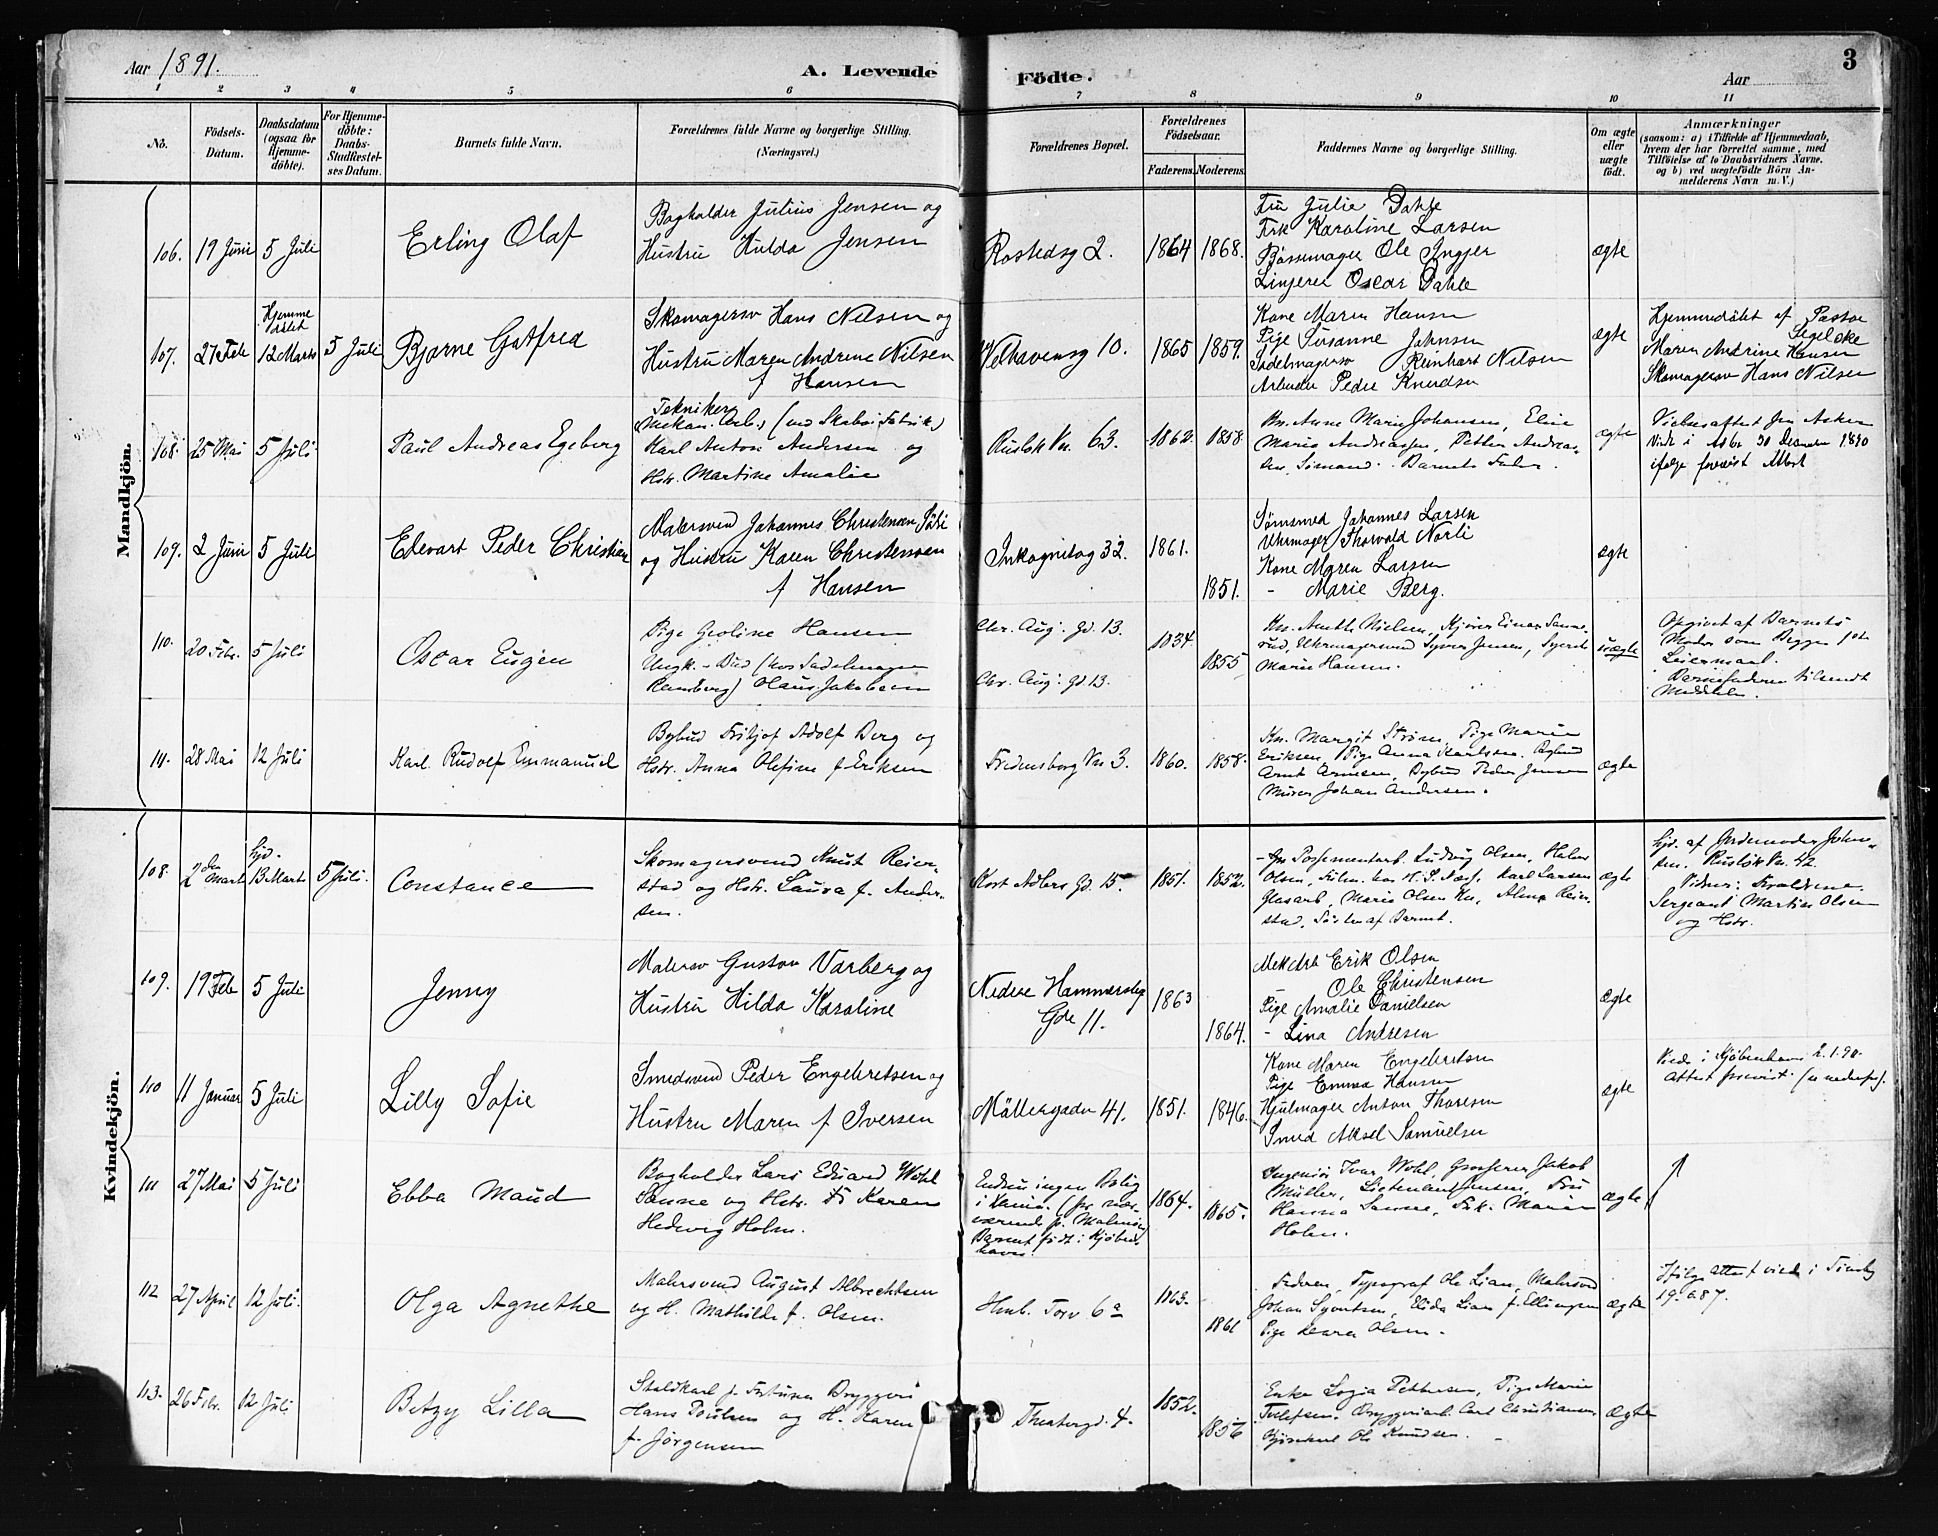 Aar 1891.
A. Levende Födte.
Aar
3
1 2 3 4 5 6 7 8 9 10 11
No.
Födsels-Datum.
Daabsdatum (ogsaa for Hjemme-döbte).
For Hjemme-döbte: Daabs-Stadfæstel-ses Datum.
Barnets fulde Navn.
Forældrenes fulde Navne og borgerlige Stilling.
(Næringsvei.)
Forældrenes Bopæl.
Forældrenes Födselsaar.
Faderens. Moderens.
Faddernes Navne og borgerlige Stilling.
Om ægte eller uægte födt.
Anmærkninger
(saasom: a) i Tilfælde af Hjemmedaab,
hvem der har forrettet samme, med
Tilföielse af to Daabsvidners Navne,
og b) ved uægtefödte Börn An-
melderens Navn m. V.)
Mandkjön.
106. 19 Juni 5 Juli
Erling Olaf
Bogholder Julius Jensen og
Hustru Hulda Jensen
Rostedsg 2.
1864 1868.
Fru Julie Dahle
Frk Karoline Larsen
Bössemager Ole Ingjer
Linjerer Oscar Dahle
ægte
107. 27 Feb
Hjemme döbt
12 Marts 5 Juli
Bjarne Gotfred
Skomagersv Hans Nilsen og
Hustru Maren Andrine Nilsen
f Hansen
Velhavensg 10.
1865 1859.
Kone Maren Hansen
Pige Susanne Johnsen
Sadelmagersv Reinhart Nilsen
Arbeider Peder Knudsen
ægte
Hjemmedöbt af Pastor
Segelcke
Maren Andrine Hansen
Skomagersv Hans Nilsen
108. 25 Mai 5 Juli
Paul Andreas Egeberg
Tekniker
Mekan. Arb. (ved Skabo Fabrik)
Karl Anton Andersen og
Hstr. Martine Amalie
Ruslök Vn. 63.
1862. 1858.
Kn. Anne Marie Johansen, Eline
Marie Andreassen, Petter Andrea-
sen, Sömand. Barnets Fader.
ægte
Vielsesattest fra Asker
Viede i Asker 30 December 1890
ifølge forevist Attest
109. 2 Juni 5 Juli
Edevart Peder Christian
Malersvend Johannes Christensen
og Hustru Karen Christensen
f Hansen
Inkognitog 32.
1861.
1851.
Sömsmed Johannes Larsen
Uhrmager Thorvald Norli
Kone Maren Larsen
- Marie Berg.
ægte
110. 20 Febr. 5 Juli
Oscar Eugen
Pige Geoline Hansen
Ungk. - Bud (hos Sadelmager
Ramberg) Olaus Jakobsen
Chr. Aug. Gd. 13.
Chr. Aug. Gd. 13.
1855
Kn. Anethe Nielsen, Kjörer Einar Sanne-
rud, Uhrmagersvend Syver Jensen, Syerske
Marie Hansen.
uægte
Opgivet af Barnets
Moder som Begges 1ste
Leiermaal.
Barnefaderen tilsendt
Meddelelse.
111. 28 Mai 12 Juli
Karl Rudolf Emmanuel
Bybud Fritjof Adolf Berg og
Hstr. Anna Olefine f. Eriksen
Fredensborg Vn 3.
1860. 1858.
Kn. Margit Ström, Pige Marie
Eriksen, Pige Anna Karlsen, Bybud
Arnt Arnesen, Bybud Peder Jensen
Murer Johan Andersen.
ægte
Kvindekjön.
108. 2den Marts
hjd.
13 Marts 5 Juli.
Constance
Skomagersvend Knut Reier-
stad og Hstr. Laura f. Ander-
sen.
Kort Adlers Gd. 15.
1851. 1852.
Possementarb. Ludvig Olsen, Helene
Olsen, Karl Larsen
Glasarb, Marie Olsen Kn, Alma Reier-
stad, Söster af Barnet.
ægte
hjd. af Jordemoder John-
sen. Ruslök Vn. 42.
Vidner: Forældrene.
Sergeant Martin Olsen
og Hstr.
109. 19 Feb 5 Juli
Jenny
Malersv Gustav Varberg og
Hustru Hilda Karoline
Nedre Hammersborg
Gde 11.
1863
1864.
Mek Arb Erik Olsen
Ole Christensen
Pige Amalie Danielsen
- Lina Andresen
ægte
110 11 Januar 5 Juli
Lilly Sofie
Smedsvend Peder Engebretsen og
Hustru Maren f Iversen
Möllergaden 41.
1851. 1846.
Kone Maren Engebretsen
Pige Emma Hansen
Hjulmager Anton Thoresen
Smed Aksel Samuelsen
ægte
Viede i Kjöbenhavn 2.1.90.
Attest forevist. (se nedenfor).
111 27 Mai 5 Juli
Ebba Maud
Bogholder Lars Edvard Wohl
Sanne og Hstr. Karen
Hedevig Holm.
Endnu ingen Bolig
i Xania. (for nær-
værende p. Malmöen)
Barnet födt i Kjöben-
havn.
1864. 1865.
Ingeniör Ivar Wohl, Grosserer Jakob
Müller, Löitenant Jensen, Fru
Hanna Sanne, Frk. Marie
Holm.
ægte
112 27 April 12 Juli.
Olga Agnethe
Malersvend August Albrechtsen
og H. Mathilde f. Olsen.
Hmb. Torv 6a
1863.
1861
Faderen, Typograf Ole Lian, Malersvd
Johan Syvertsen, Elida Lian f. Ellingsen
Pige Laura Olsen.
ægte
Ifølge attest viede i Tönsberg
87.
113. 26 Febr. 12 Juli
Betzy Lilla
Staldkarl p. Fortuna Bryggeri
Hans Poulsen og H. Karen
f. Jörgensen
Theatergd. 4.
1852.
1856
Enke Logia Pettersen, Pige Marie
Tellefsen, Bryggeriarb. Carl Christiansen,
Ole Knudsen.
ægte